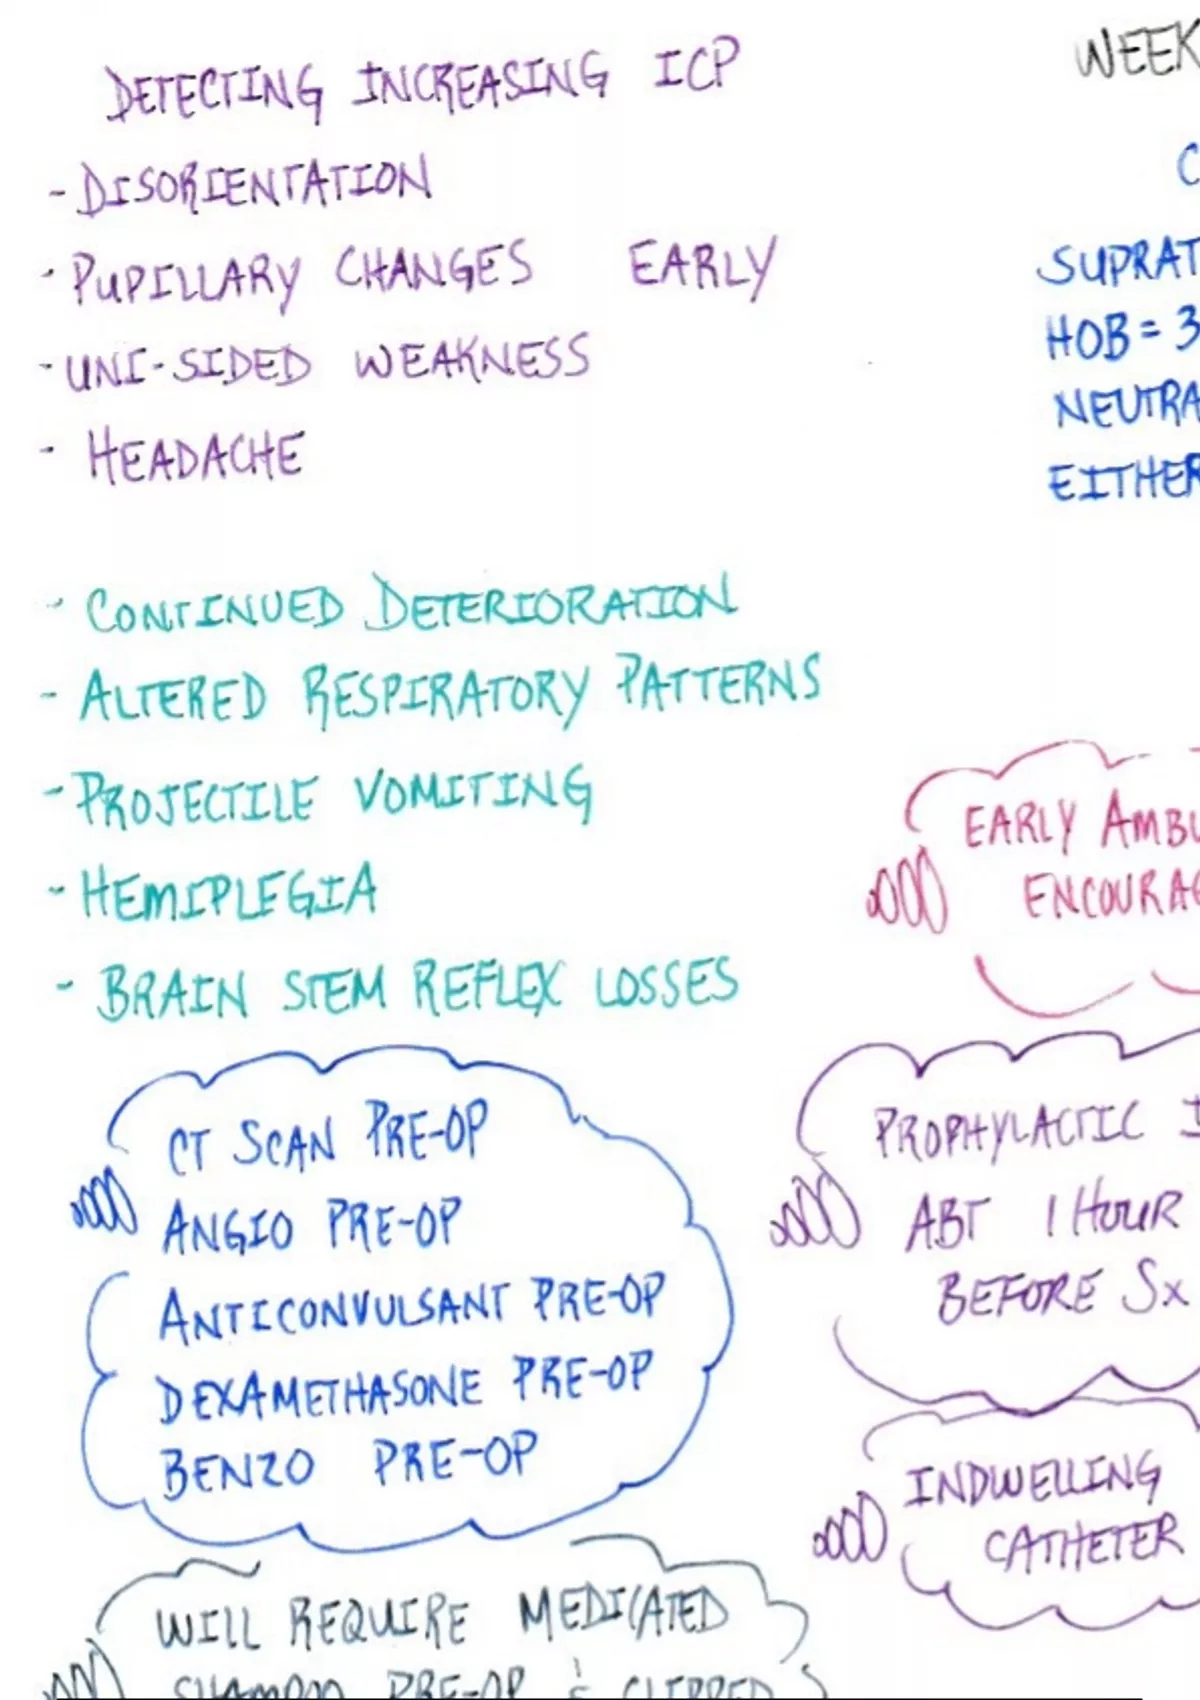 DETECTING INCREASING ICP
- DISORIENTATION
- PUPILLARY CHANGES EARLY
- UNI-SIDED WEAKNESS
- HEADACHE
- CONTINUED DETERIORATION
- ALTERED RESPIRATORY PATTERNS
- PROJECTILE VOMITING
- HEMIPLEGIA
- BRAIN STEM REFLEX LOSSES
CT SCAN PRE-OP
ANGIO PRE-OP
ANTICONVULSANT PRE-OP
DEXAMETHASONE PRE-OP
BENZO PRE-OP
WILL REQUIRE MEDICATED
SHAMPOO PRE-OP & CLIPPED
WEEK
C
SUPRAT
HOB = 3
NEUTRA
EITHER
EARLY AMBU
ENCOURAG
PROPHYLACTIC I
ABT 1 HOUR
BEFORE Sx
INDWELLING
CATHETER